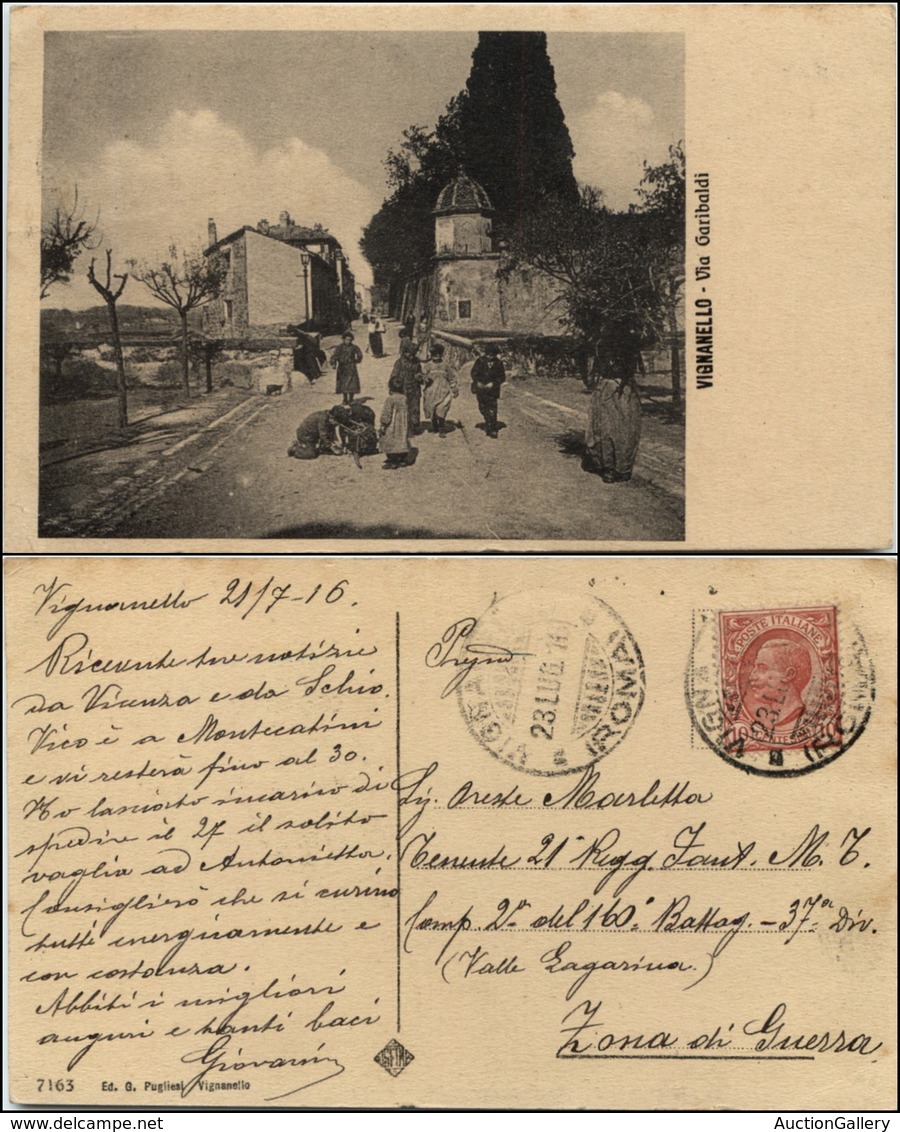 VIGNANELLO - Via Garibaldi
Vignanello 21/7-16.
Ricevute tue notizie
da Vicenza e da Schio.
Vico è a Montecatini
e vi resterà fino al 30.
Ho lasciato incarico di
spedire il 27 il solito
vaglia ad Antonietta.
Consiglierò che si curino
tutti energicamente e
con costanza.
Abbiti i migliori
auguri e tanti baci
Giovanni
7163 Ed. G. Pugliesi Vignanello
Pregno
23 LUG. 16
(ROMA)
POSTE ITALIANE
10
23 L
Sig. Oreste Marletta
Tenente 21° Regg. Fant. M. T.
Comp. 2a del 160° Battag. - 37a Div.
(Valle Lagarina)
Zona di Guerra
AuctionGallery